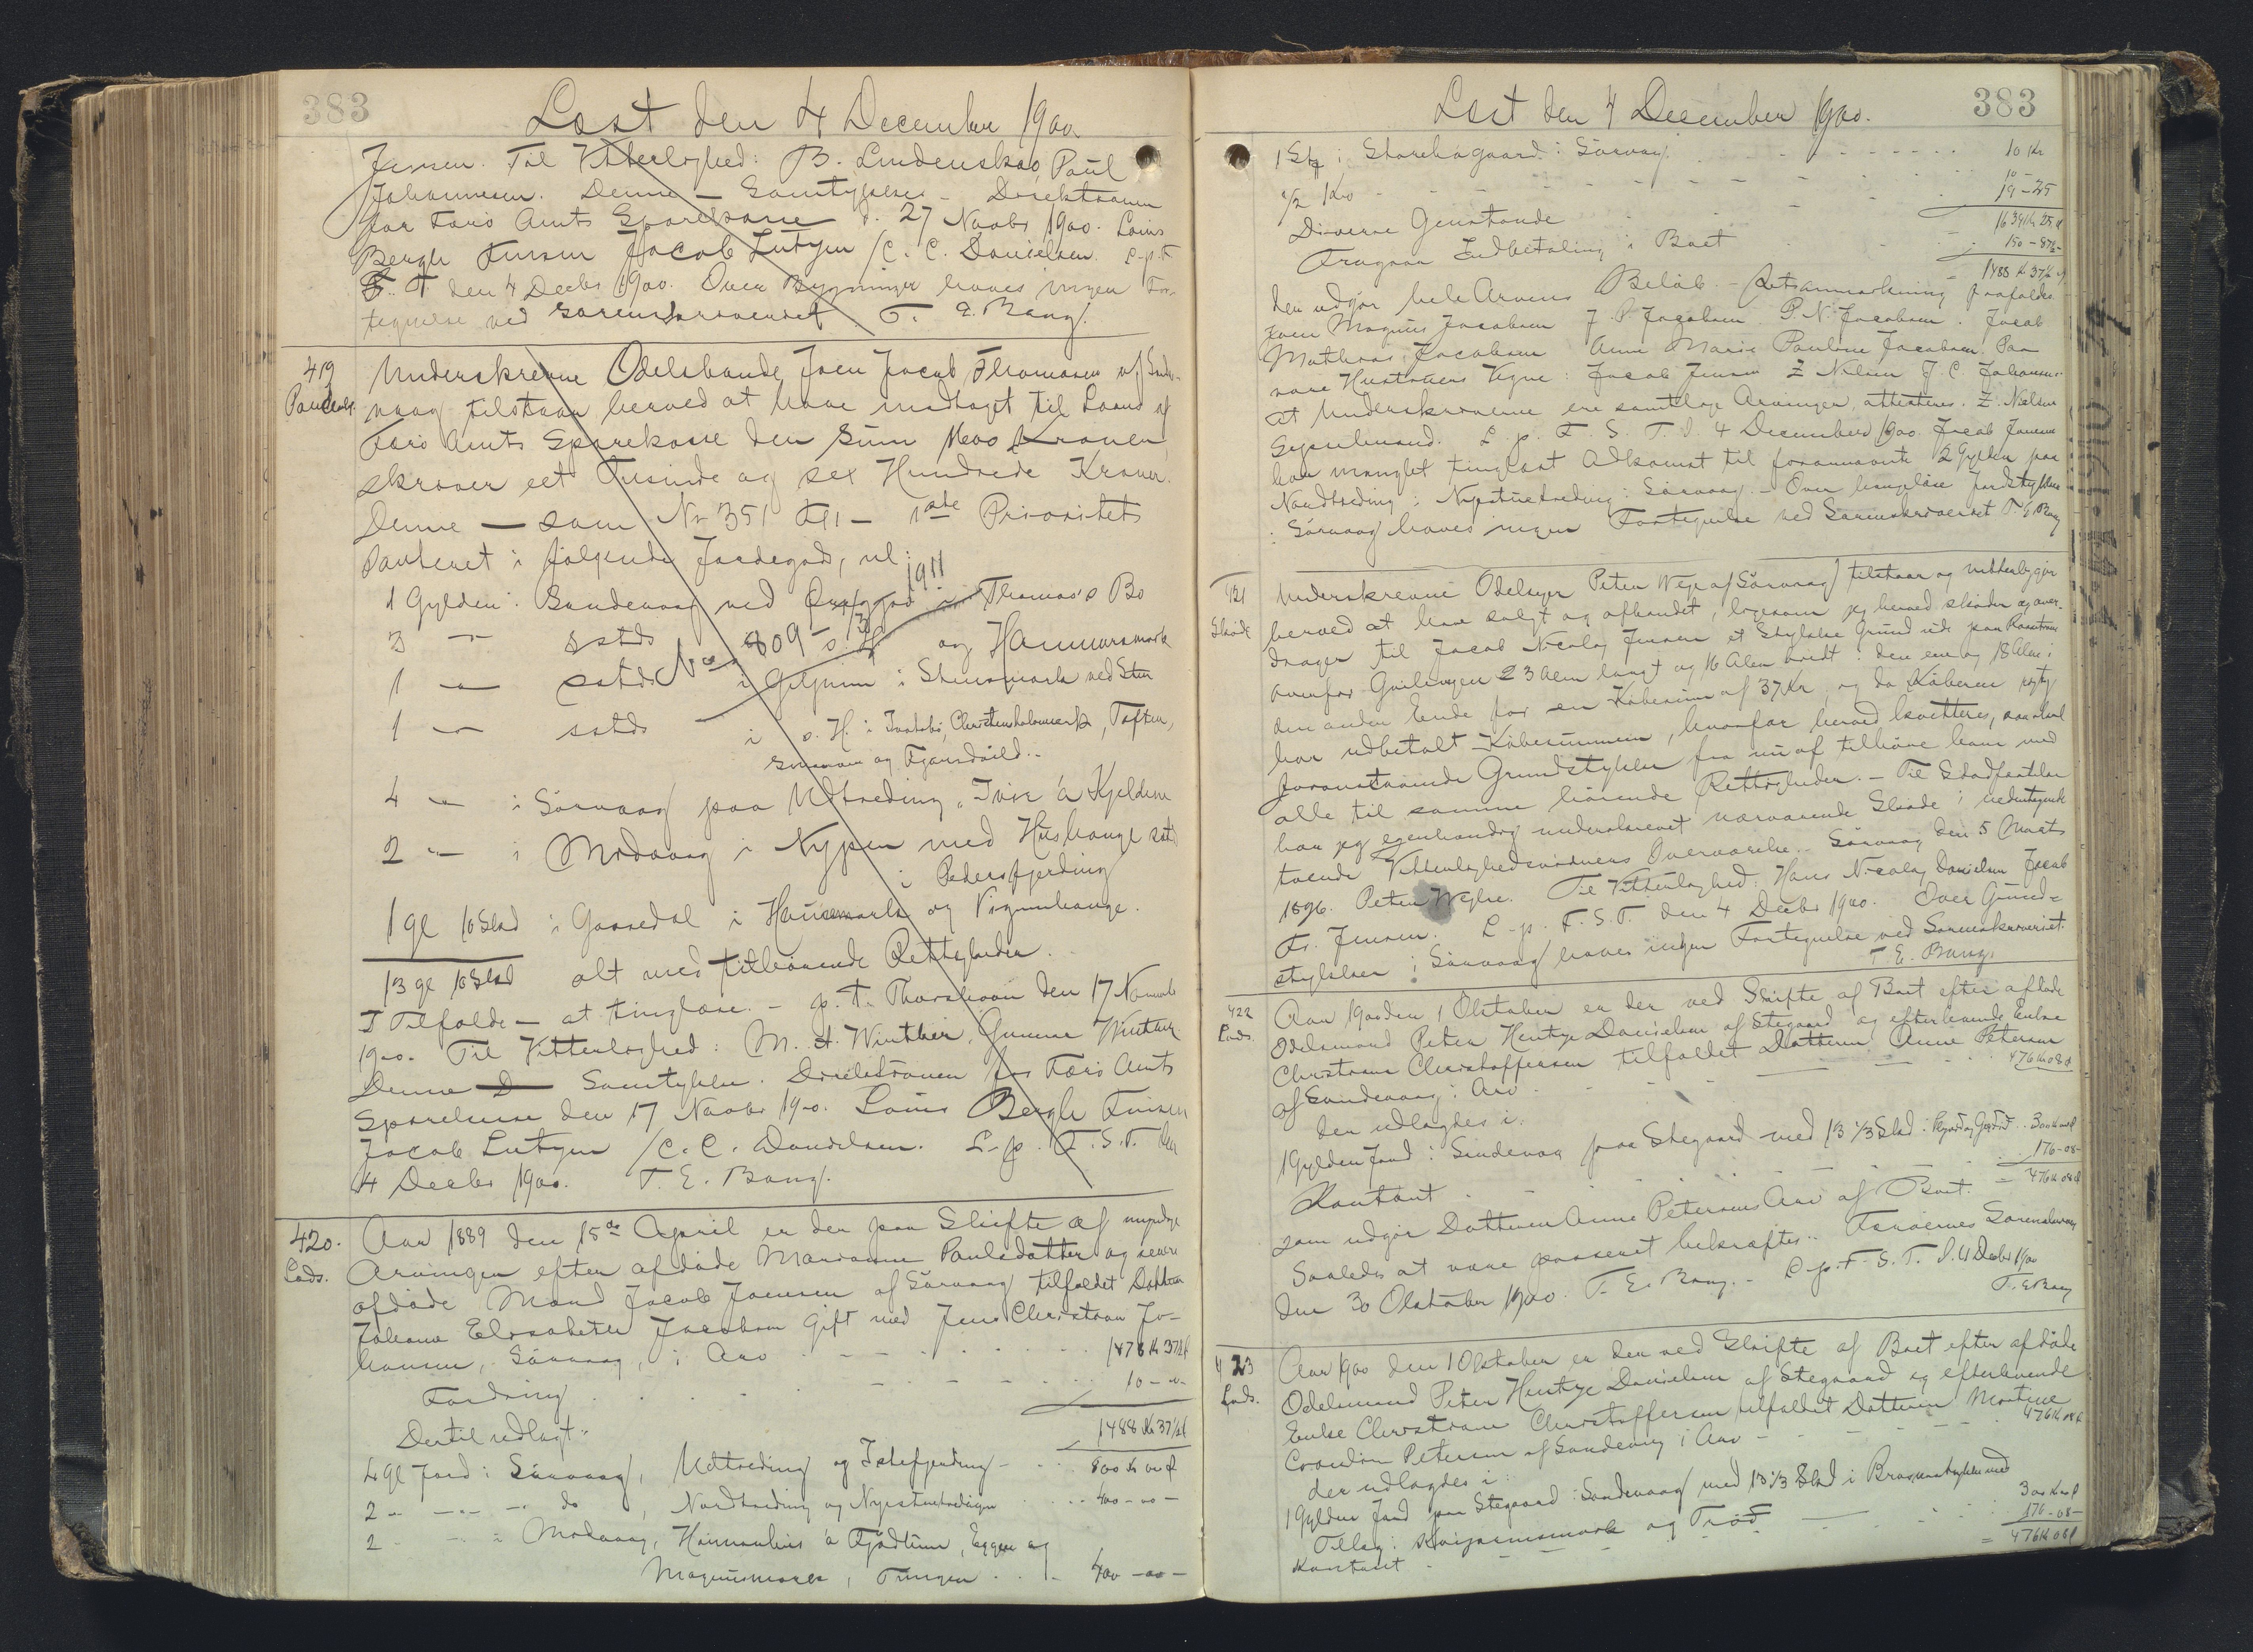 383
Læst den 4 December 1900
Jensen. Til Vitterlighed: B. Lindenskov, Poul
Johannesen. Denne — Samtykkes — Direktionen
for Færø Amts Sparekasse d. 27 Novbr 1900. Louis
Bergh Finsen Jacob Lützen / C. C. Danielsen. L. p. F.
S. T. den 4 Decbr 1900. Over Bygninger haves ingen For-
tegnelse ved Sorenskriveriet. T. E. Bang.
419
Underskrevne Odelsbonde Joen Jacob Thomasen af Sande-
Panteobl.
vaag tilstaar herved at have modtaget til Laans af
Færø Amts Sparekasse den Sum 1600 Kroner,
skriver eet Tusinde og sex Hundrede Kroner.
Denne — som No 351 1ste Prioritets
Panteret i følgende Jordegods, nl:
1 Gylden i Sandevaag ved i Thomas's Bo
1911
3 — sstds og Hammersmark
No 809
1 — sstds i Giljum i Steinsmark ved Sten
1 — sstds i s. H. i Ivatsbø, Christenholamærk, Toften,
og
4 — i Sørvaag paa Udtreding "Ivir á Kjeldene
2 — i Midvaag i Nypen med Hushauge sstd
i Pedersfjerding
1 gl 10 Skd i Gaasedal i Heimemark og
13 gl 10 Skd alt med tilhørende Rettigheder.
I Tilfælde — at tinglæse. — p. t. Thorshavn den 17 Novembr
1900. Til Vitterlighed: M. A. Winther, Gunnar Winther
Denne Samtykkes. Direktionen for Færø Amts
Sparekasse den 17 Novbr 1900. Louis Bergh Finsen
Jacob Lützen / C. C. Danielsen. L. p. F. S. T. den
4 Decbr 1900. T. E. Bang.
420.
Aar 1889 den 15de April er der paa Skifte af myndige
Lods.
Arvinger efter afdøde Marianne Poulsdatter og senere
afdøde Mand Jacob Joensen af Sørvaag tilfaldet Datteren
Johanne Elisabeth Jacobsen gift med Jens Christian Jo-
hansen, Sørvaag, i Arv 1478 Kr 37½ Ø
Fordring 10 - 00 -
1488 Kr 37½ Ø
Dertil udlagt:
4 gl Jord i Sørvaag, Udtreding og Intefjerding 800 Kr 00 Ø
2 — — do, Nordtreding og Nyestuetredingen 400 - 00 -
2 — i Midvaag, Heimanhuis á Fjødtun, Eggen og
Magnusmark, Tungen 400 - 00 -
383
Læst den 4 December 1900.
1 i Storehagaard i Sørvaag 10 Kr
½ Ko 10 -
Diverse Genstande 19 - 25
1639 Kr 25 Ø
Fragaar Indbetaling i Boet 150 - 87½ -
1488 Kr 37½ Ø
den udgjør hele Arvens Beløb. — Retsanmærkning
Joen Magnus Jacobsen J. P. Jacobsen P. N. Jacobsen. Jacob
Mathias Jacobsen Anne Marie Pauline Jacobsen Paa
vore Hustruers Vegne: Jacob Jensen Z Nielsen J. C. Johansen.
At Underskriverne ere samtlige Arvinger, attesteres. Z. Nielsen
Sysselmand. L. p. F. S. T. d. 4 December 1900. Jacob Joensen
har manglet tinglæst Adkomst til forannævnte 2 Gylden paa
Nordtreding i Nyestuetreding i Sørvaag. — Over Jordstykker
i Sørvaag haves ingen Fortegnelse ved Sorenskriveriet T. E. Bang
421
Underskrevne Odelsejer Peter Weje af Sørvaag tilstaar og vitterliggør
Skøde
herved at have solgt og afhændet, ligesom jeg herved skøder og over-
drager til Jacob Nicolaj Jensen et Stykke Grund ude paa
ovenfor 23 Alen langt og 16 Alen bredt i den ene og 18 Alen i
den anden Ende for en Købesum af 37 Kr, og da Køberen rigtig
har udbetalt Købesummen, hvorfor herved kvitteres, saa skal
foranstaaende Grundstykke fra nu af tilhøre ham med
alle til samme hørende Rettigheder. — Til Stadfæstelse
har jeg egenhændig underskrevet nærværende Skøde i undertegnede
tvende Vitterlighedsvidners Overværelse. — Sørvaag den 5 Marts
1896. Peter Wejhe. Til Vitterlighed: Hans Nicolaj Danielsen Jacob
Fr. Jensen. L. p. F. S. T. den 4 Decbr 1900. Over Grund-
stykker i Sørvaag haves ingen Fortegnelse ved Sorenskriveriet.
T. E. Bang.
422
Aar 1900 den 1 Oktober er der ved Skifte af Boet efter afdøde
Lods.
Odelsmand Peter Hentze Danielsen af Stegaard og efterlevende Enke
Christiane Christoffersen tilfaldet Datteren Anne Petersen
af Sandevaag i Arv 476 Kr 08 Ø
der udlagdes i:
1 Gylden Jord i Sandevaag paa Stegaard med 13 1/3 Skd i 300 Kr 00 Ø
Kontant 176 - 08 -
= 476 Kr 08 Ø
som udgør Datteren Anne Petersens Arv af Boet.
Saaledes at være passeret bekræftes. Færøernes Sorenskriveri
den 30 Oktober 1900. T. E. Bang. — L. p. F. S. T. d. 4 Decbr 1900
T. E. Bang
423
Aar 1900 den 1 Oktober er der ved Skifte af Boet efter afdøde
Lods.
Odelsmand Peter Hentze Danielsen af Stegaard og efterlevende
Enke Christiane Christoffersen tilfaldet Datteren Martine
Petersen af Sandevaag i Arv 476 Kr 08 Ø
der udlagdes i:
1 Gylden Jord paa Stegaard i Sandevaag med 13 1/3 Skd i med
Tillæg i og Trød 300 Kr 00 Ø
Kontant 176 - 08 -
= 476 Kr 08 Ø